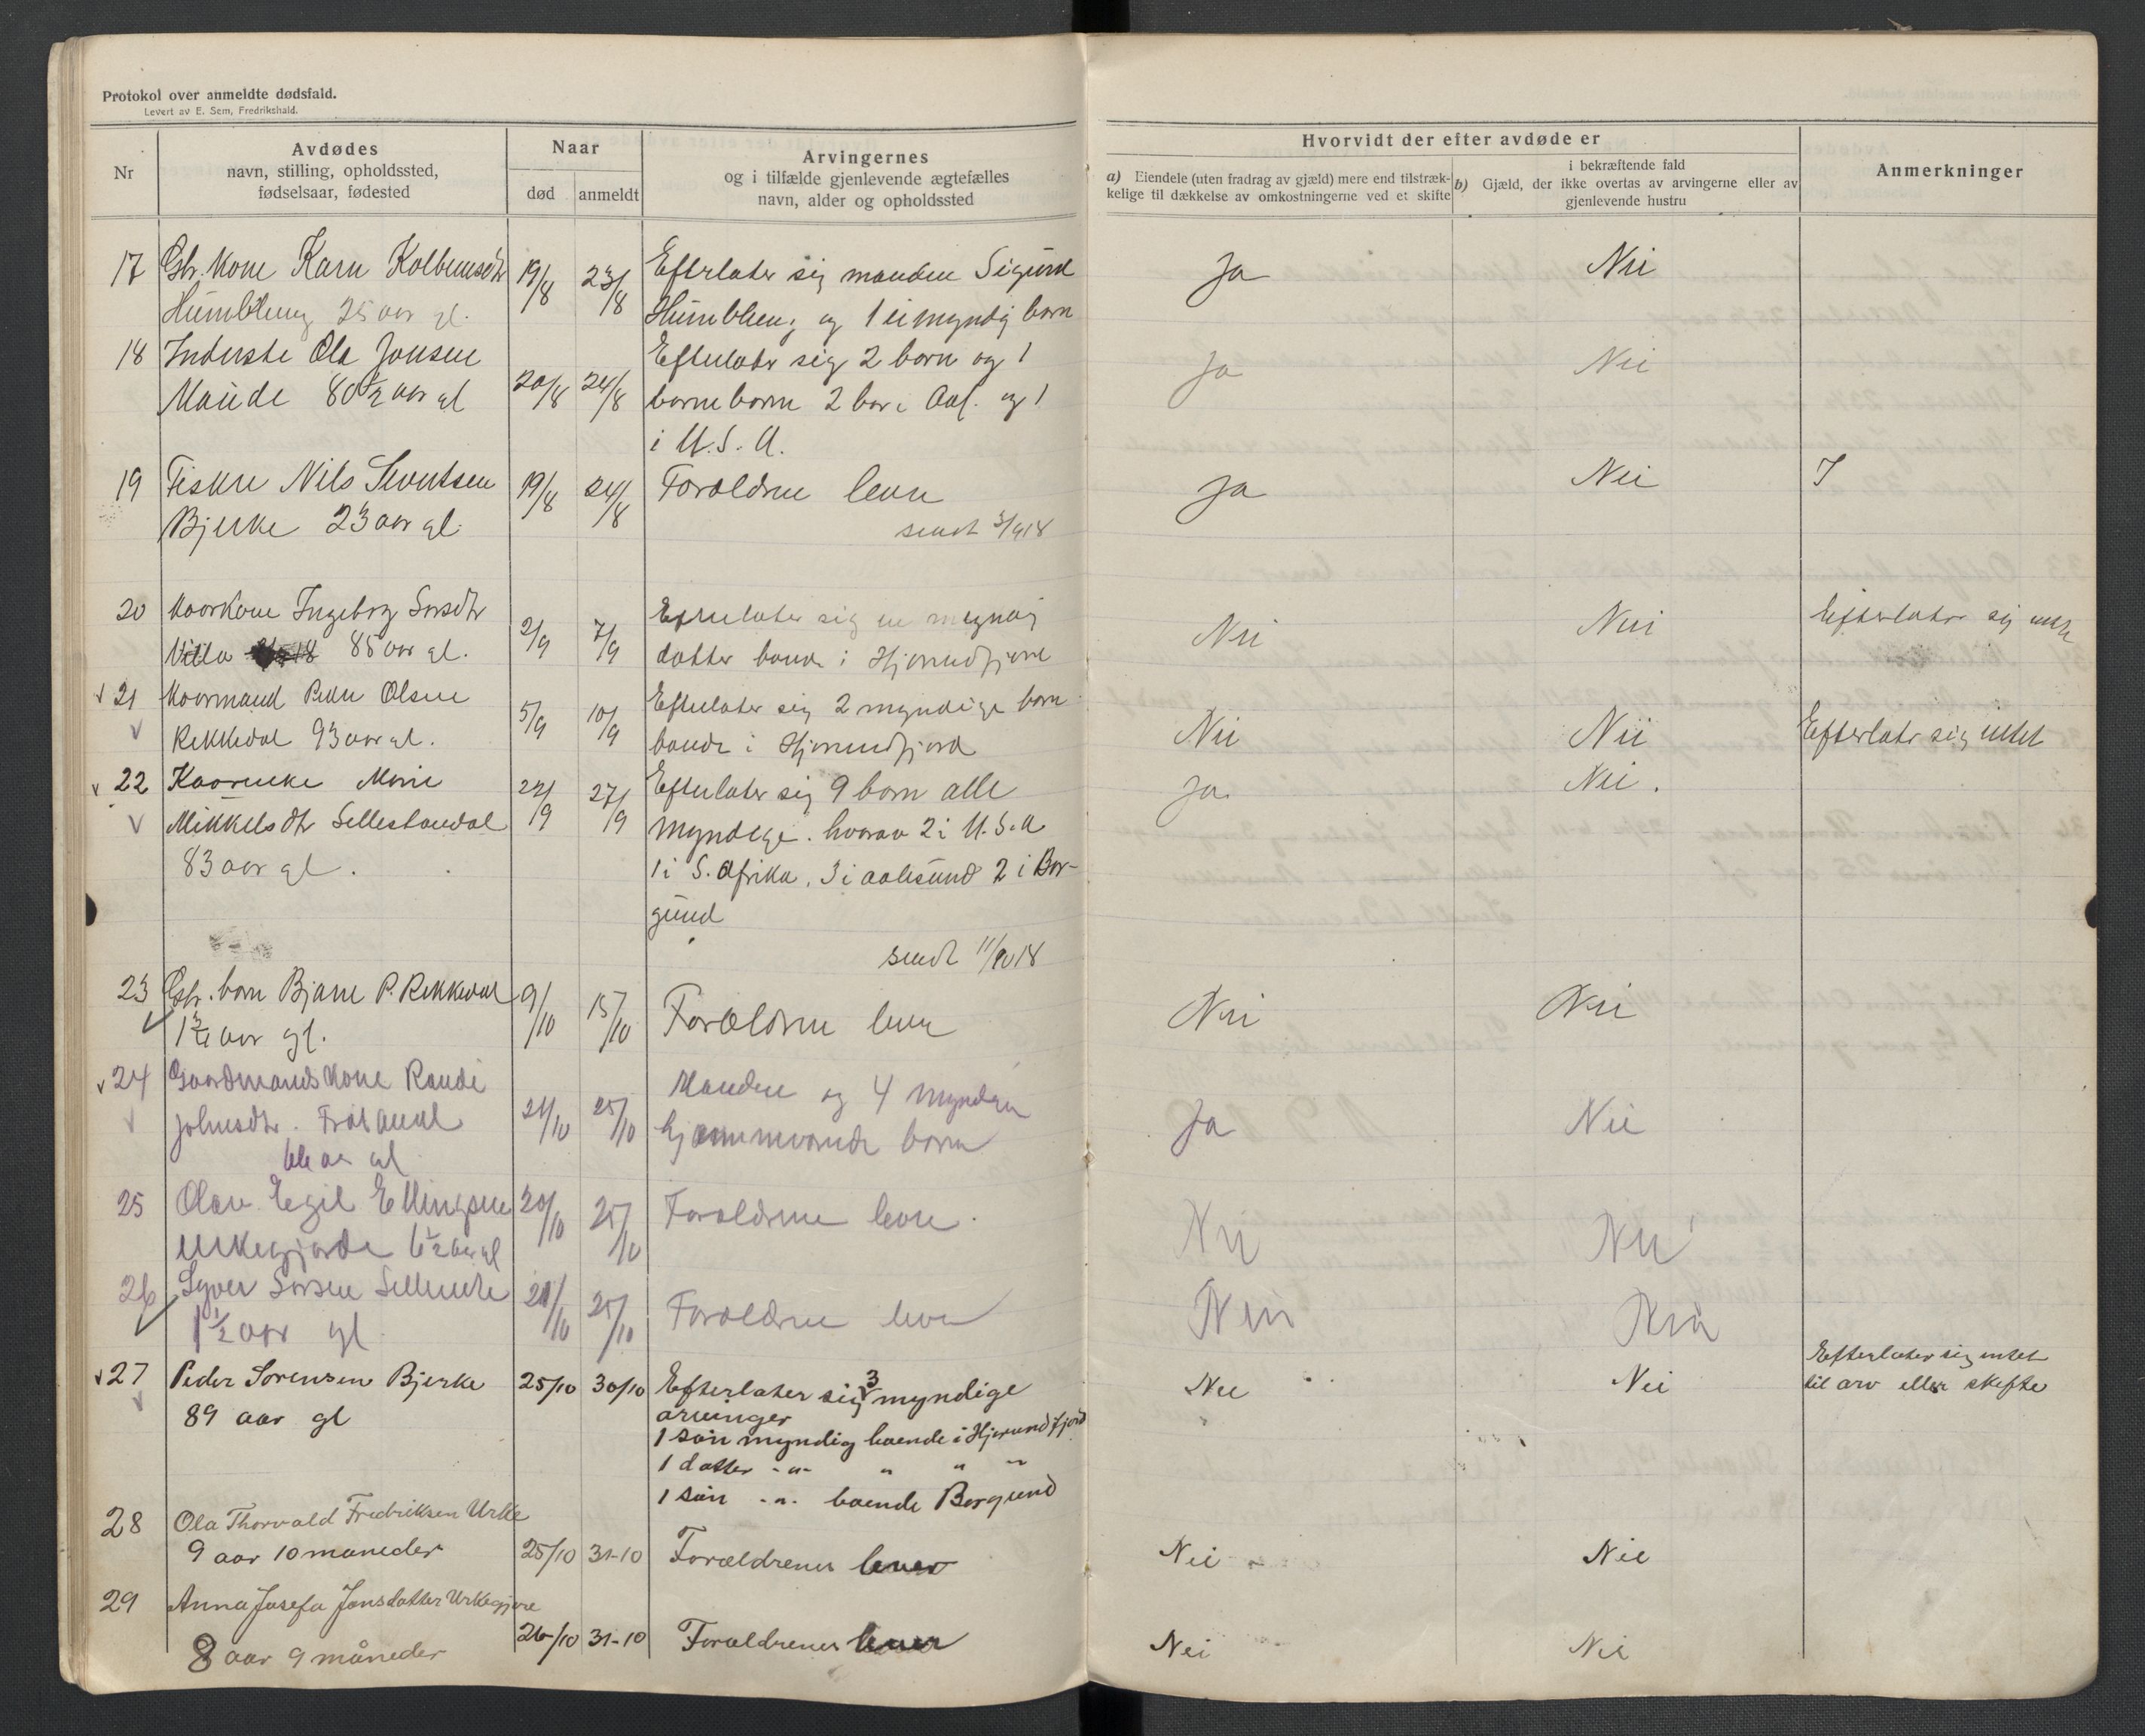 Protokol over anmeldte dødsfald.
Levert av E. Sem, Fredrikshald.
Nr
Avdødes
navn, stilling, opholdssted,
fødselsaar, fødested
Naar
død
anmeldt
Arvingernes
og i tilfælde gjenlevende ægtefælles
navn, alder og opholdssted
Hvorvidt der efter avdøde er
a) Eiendele (uten fradrag av gjæld) mere end tilstræk-
kelige til dækkelse av omkostningerne ved et skifte
i bekræftende fald
b) Gjæld, der ikke overtas av arvingerne eller av
gjenlevende hustru
Anmerkninger
17 Gbr. kone Karn 19/8 23/8 Efterlater sig manden Sigurd Ja Nei
25 aar gl. og 1 ei myndig barn
18 Inderste Ola Jonsen Efterlater sig 2 barn og 1 Ja Nei
Maude 80½ aar gl 20/8 24/8 barnebarn 2 bor i Aal. og 1
i U.S.A.
19 Fisker Nils Sivertsen 19/8 24/8 Forældrene lever Ja Nei
Bjerke 23 aar gl. sendt 3/9 18
20 Kaarkone Ingeborg 2/9 7/9 Efterlater sig en myndig Nei Nei Efterlater sig intet
Villa 85 aar gl. datter boende i Hjørundfjord
21 Kaarmand Peder Olsen 5/9 10/9 Efterlater sig 2 myndige barn Nei Nei Efterlater sig intet
Rekkedal 93 aar gl. boende i Hjørundfjord
22 Kaarenke Marie 22/9 27/9 Efterlater sig 9 born alle Ja Nei.
Mikkelsdtr myndige. hvorav 2 i U.S.A
83 aar gl. 1 i S. Afrika, 3 i aalesund 2 i Bor-
gund
sendt 11/10 18
23 Gbr. barn Bjarne P. Rekkedal 9/10 15/10 Forældrene lever Nei Nei
aar gl.
24 Gaardmandskone Randi 21/10 25/10 Manden og 4 myndige Ja Nei
Johnsdtr. hjemmeværende barn
aar gl
25 Olav Egil Ellingsen 20/10 25/10 Forældrene lever. Nei Nei
Urkegjerde 6½ aar gl
26 Syver 21/10 25/10 Forældrene lever Nei Nei
1½ aar gl
27 Peder Sorensen Bjerke 25/10 30/10 Efterlater sig 3 myndige Nei Nei Efterlater sig intet
89 aar gl arvinger til arv eller skefte
1 søn myndig boende i Hjørundfjord
1 datter -"- " " "
1 søn -"- boende Borgund
28 Ola Thorvald Fredriksen Urke
9 aar 10 maneder 25/10 31-10 Forældrener lever Nei Nei
29 Anna Josefa Jonsdatter Urkegjære
8 aar 9 måneder 26/10 31-10 Forældrener lever Nei Nei